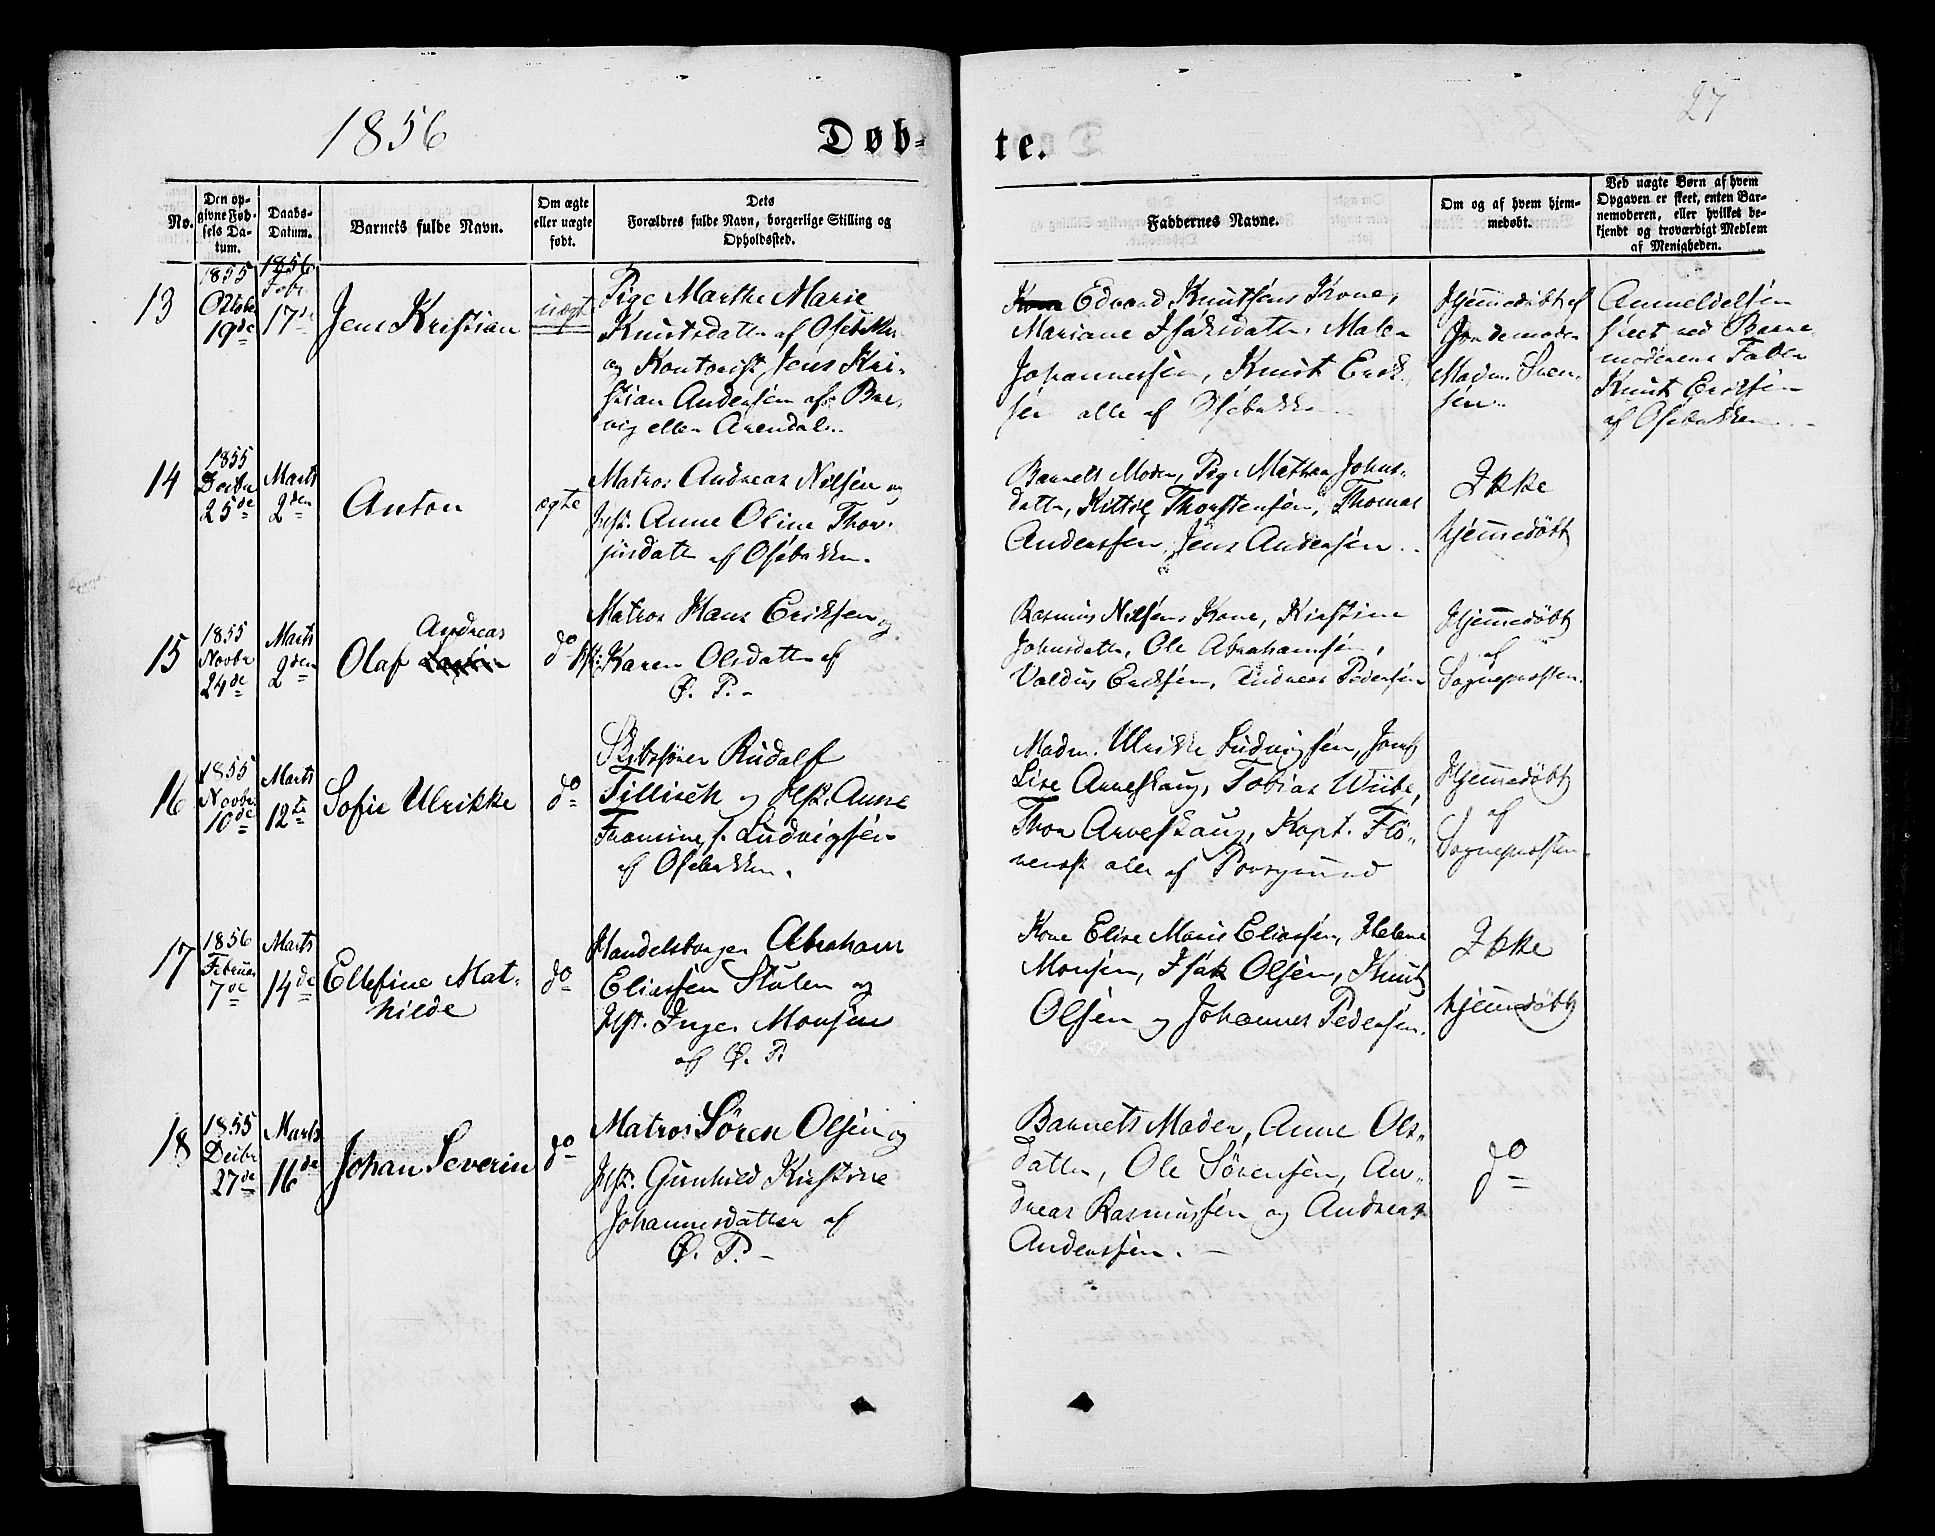 1856
Døb-
te.
27
No.
Den op-
givne Fød-
sels Da-
tum.
Daabs-
Datum.
Barnets fulde Navn.
Om ægte
eller uægte
født.
Dets
Forældres fulde Navn, borgerlige Stilling og
Opholdssted.
Faddernes Navne.
Om og af hvem hjem-
medøbt.
Ved uægte Børn af hvem
Opgaven er skeet, enten Bar-
nemoderen, eller hvilket be-
kjendt og troværdigt Medlem
af Menigheden.
13
1855
Octobr
19de
1856
Febr
17de
Jens Kristian
uægte
Pige Marthe Marie
Knutsdatter af Osebakken
og Kontorist Jens Kri-
stian Andersen af
vig eller Arendal.
Edvard Knutsens Kone,
Mariane Isaksdatter, Malen
Johannessen, Knut Erik-
sen alle af Osebakken
Hjemmedøbt af
Jordemoder
Madm. Sven-
sen.
Anmeldelsen
skeet ved Barne
moderens Fader
Knut Eriksen
af Osebakken
14
1855
Decbr
25de
Marts
2den
Anton
ægte
Matros Andreas Nilsen og
Hst. Anne Oline Thor-
jusdatter af Osebakken.
Barnets Moder, Pig. Methea Johns-
datter, Kittil Thorstensen, Thomas
Anderssen, Jens Andersen
Ikke
hjemmedøbt
15
1855
Novbr
24de
Marts
2den
Andreas
Olaf
do
Matros Hans Eriksen og
Hst. Karen Olsdatter af
Ø. P.
Rasmus Nilsens Kone, Kirstine
Johnsdatter, Ole Abrahamsen,
Valdus Eriksen, Andreas Pedersen
Hjemmedøbt
af
Sognepresten.
16
1855
Novbr
10de
Marts
12te
Sofie Ulrikke
do
Skibsfører Rudolf
Tillisch og Hst. Anne
Fransine f. Ludvigsen
af Osebakken.
Madm. Ulrikke Ludvigsen, Jomf
Lise Arveskaug, Tobias Wiibe,
Thor Arveskaug, Kapt. Flö-
renesk alle af Porsgrund
Hjemmedøbt
af
Sognepresten
17
1856
Februar
7de
Marts
14de
Ellefine Mat-
hilde
do
Handelsborger Abraham
Eliassen Stulen og
Hst. Inger Monsen
af Ø. P.
Kone Elise Marie Eliassen, Helene
Monsen, Isak Olsen, Knut
Olsen og Johannes Pedersen.
Ikke
hjemmedøbt
18
1855
Decbr
27de
Marts
16de
Johan Severin
do
Matros Sören Olsen og
Hst. Gunhild Kirstine
Johannesdatter af
Ø. P.
Barnets Moder, Anne Ols-
datter, Ole Sörensen, An-
dreas Rasmussen og Andreas
Anderssen.
do